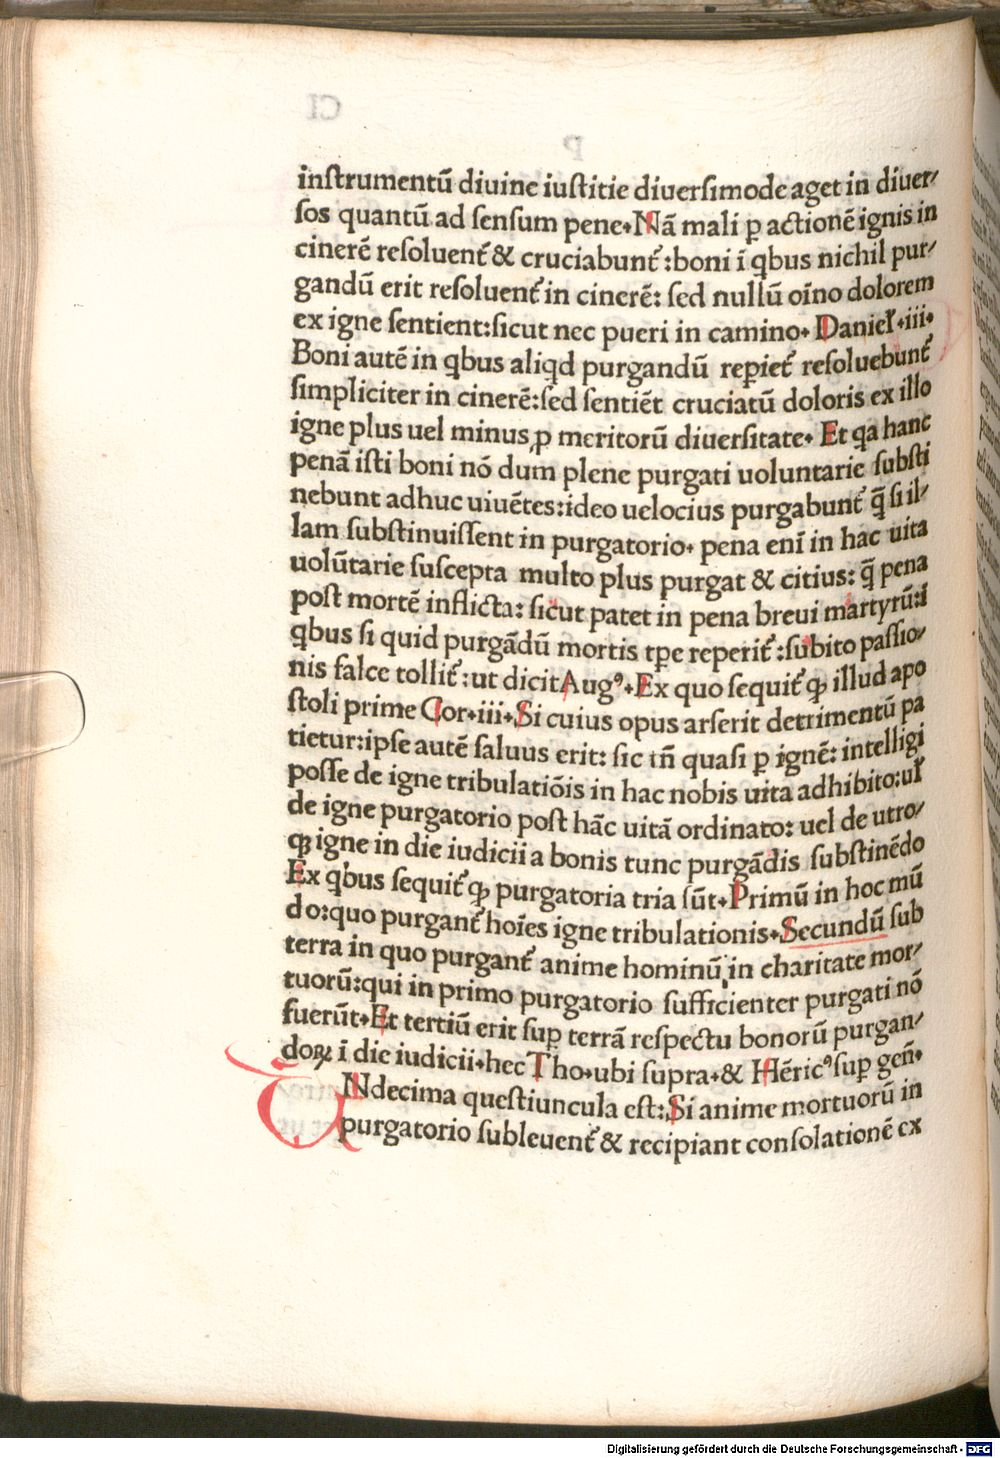 instrumentū diuine iustitie diuersimode aget in diuer/
sos quantū ad sensum pene. Nā mali ꝑ actionē ignis in
cinerē resoluent᷑ & cruciabunt᷑ : boni ī qbus nichil pur/
gandū erit resoluent᷑ in cinerē: sed nullū oīno dolorem
ex igne sentient: sicut nec pueri in camino. Danieł .iii.
Boni autē in qbus aliqd purgandū repiet᷑ resoluebunt᷑
simpliciter in cinerē: sed sentiēt cruciatū doloris ex illo
igne plus uel minus ꝓ meritorū diuersitate. Et qa hanc
penā isti boni nō dum plene purgati uoluntarie substi
nebunt adhuc uiuētes: ideo uelocius purgabunt᷑ q̄ si il/
lam substinuissent in purgatorio. pena enī in hac uita
uolūtarie suscepta multo plus purgat & citius: q̄ pena
post mortē inflicta: sicut patet in pena breui martyrū: ī
qbus si quid purgādū mortis tꝑe reperit᷑ : subito passio/
nis falce tollit᷑ : ut dicit Augꝰ. Ex quo sequit᷑ ꝙ illud apo
stoli prime Cor. iii. Si cuius opus arserit detrimentū pa
tietur: ipse autē saluus erit: sic tn̄ quasi ꝑ ignē: intelligi
posse de igne tribulatiōis in hac nobis uita adhibito: uł
de igne purgatorio post hāc uitā ordinato: uel de utro/
ꝙ igne in die iudicii a bonis tunc purgādis substinēdo
Ex qbus sequit᷑ ꝙ purgatoria tria sūt. Primū in hoc mū
do: quo purgant᷑ hoīes igne tribulationis. Secundū sub
terra in quo purgant᷑ anime hominū in charitate mor/
tuorū: qui in primo purgatorio sufficienter purgati nō
fuerūt. Et tertiū erit suꝑ terrā respectu bonorū purgan/
doꝝ ī die iudicii. hec Tho. ubi supra. & Hēricꝰ suꝑ gen̄.
UNdecima questiuncula est: Si anime mortuorū in
purgatorio subleuent᷑ & recipiant consolationē ex
Digitalisierung gefördert durch die Deutsche Forschungsgemeinschaft - DFG